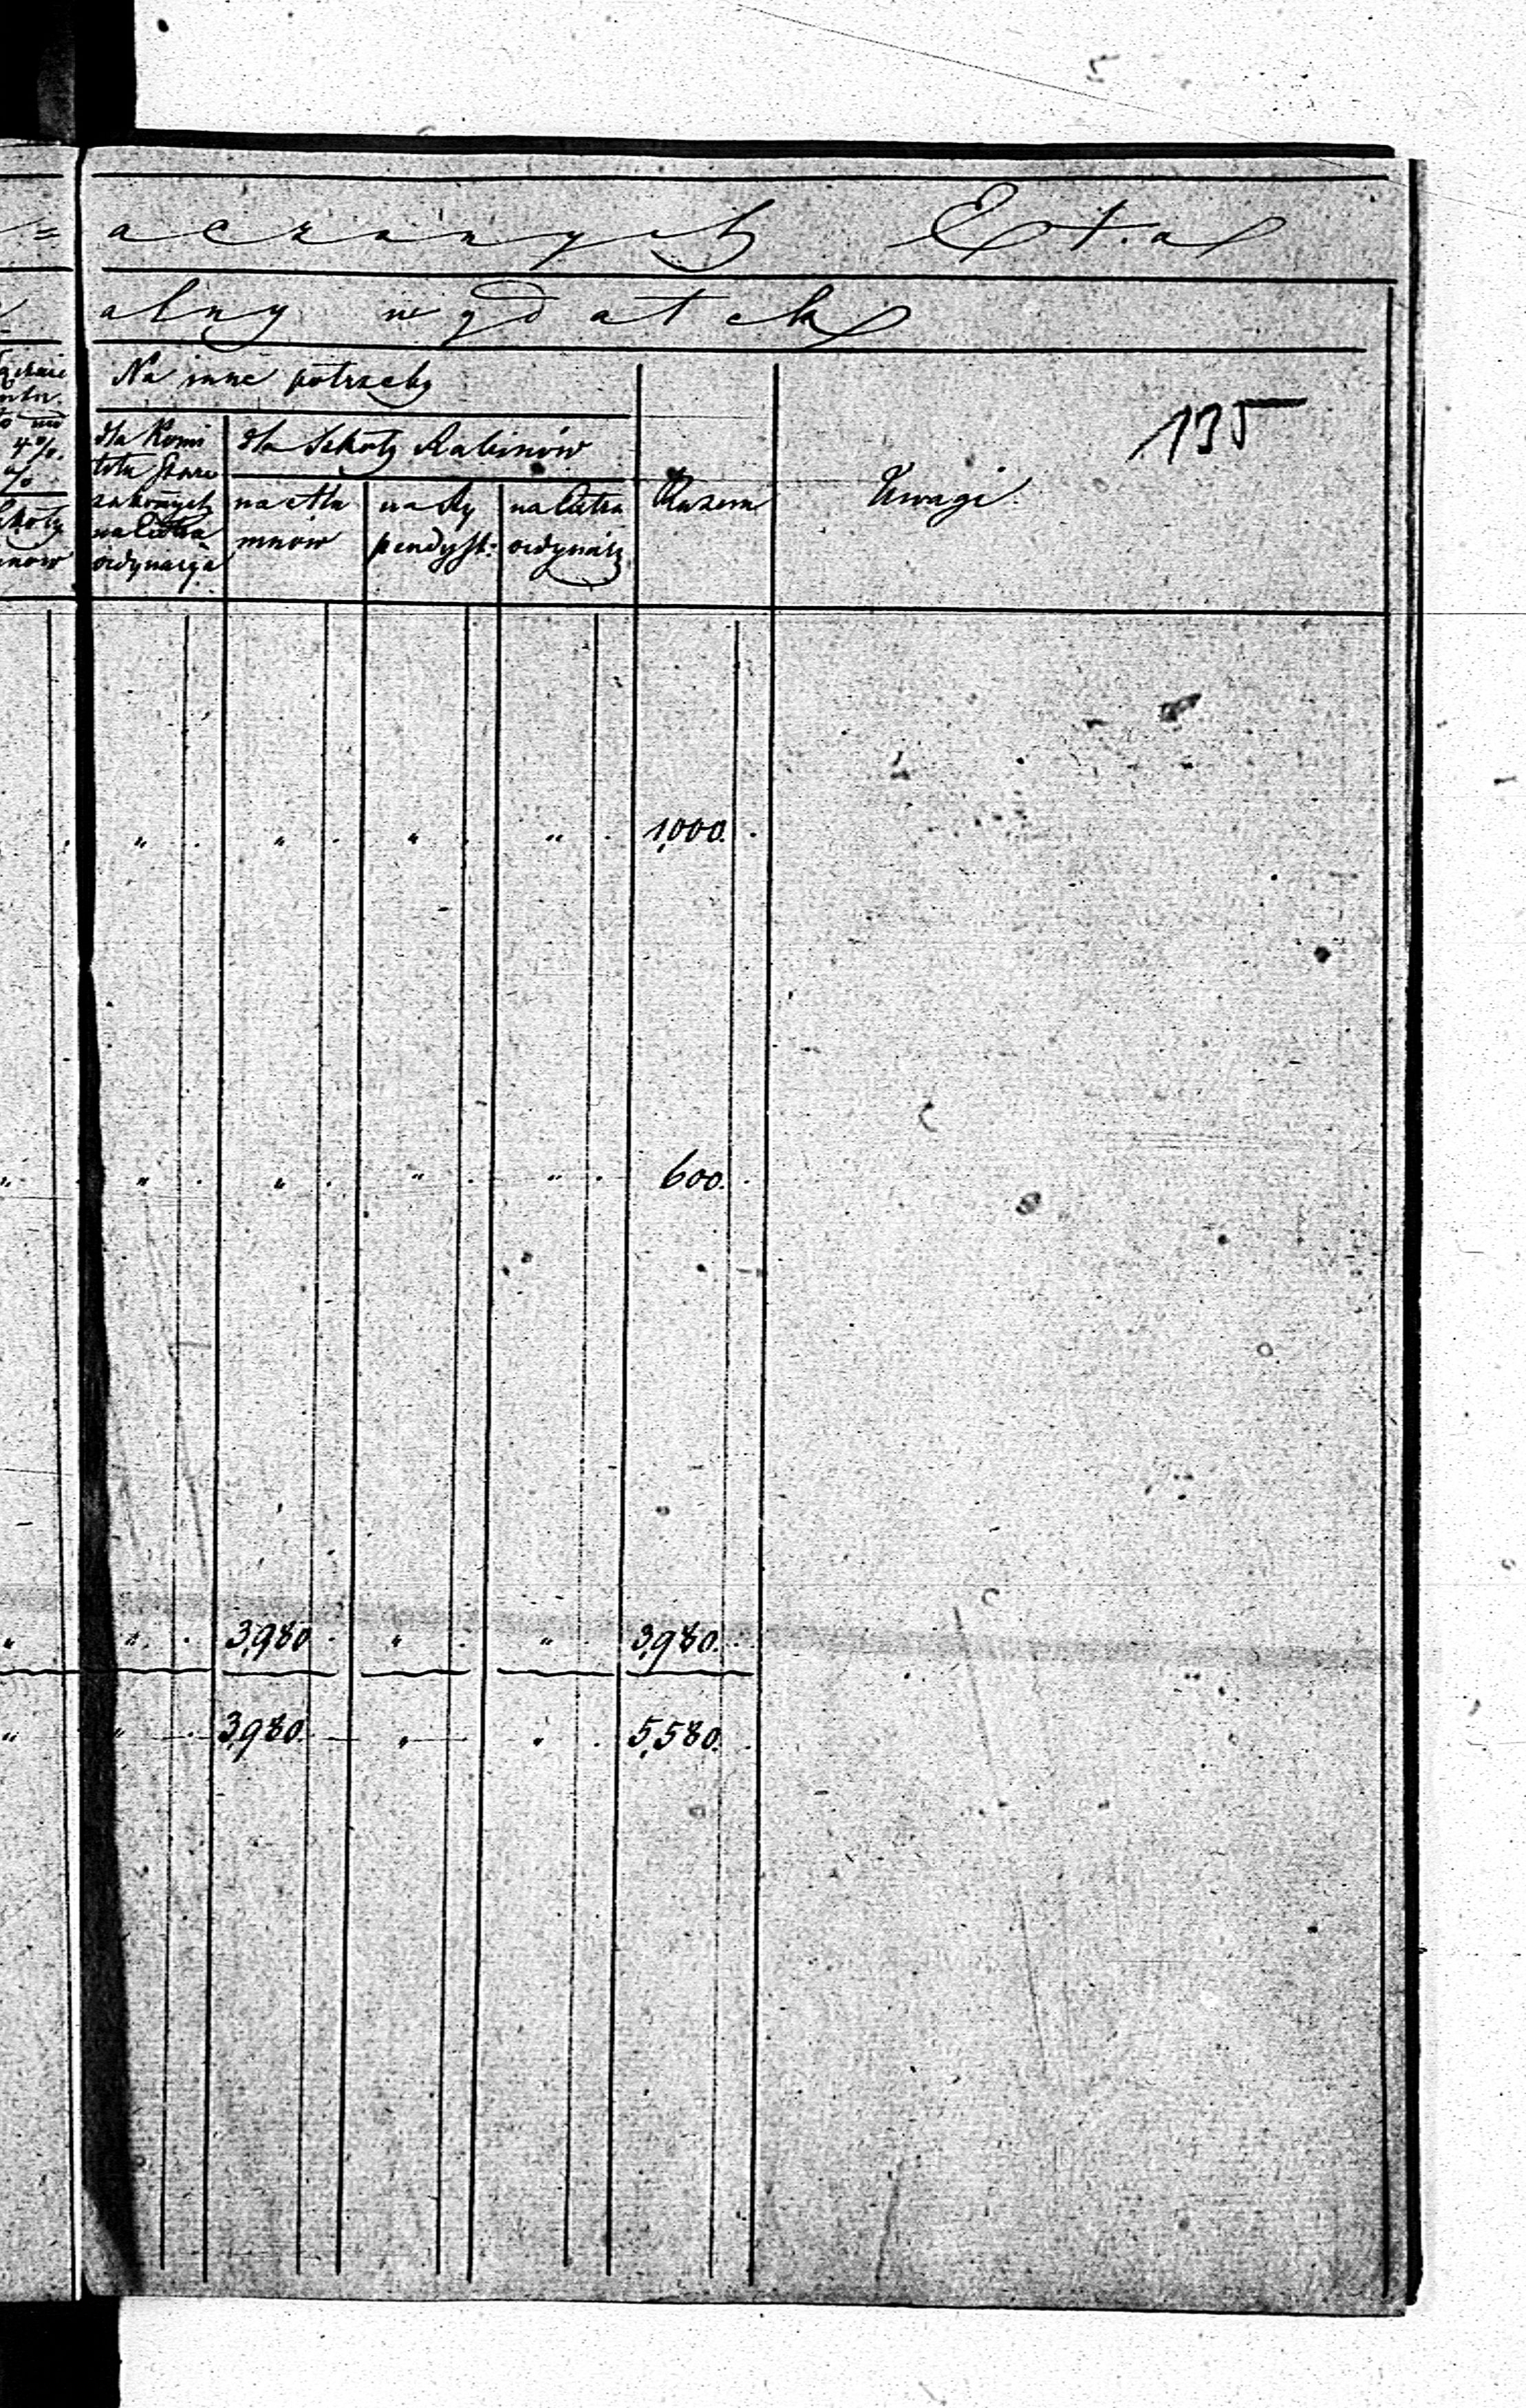 = aczonych Eta
alny wydatek
Na inne potrzeby
135
dla Komi
tetu Staro
zakonnych
na Extra
ordynarya
dla Szkoły Rabinów
na Alu
mnów
na Sty
pendyst:
na Extra
ordynar:
Razem
Uwagi
4%.
" . " . " . " . 1,000. .
" " . " . " . " . 600. .
" " . 3,980 . " . " . 3,980. .
" " . 3,980. " " . 5,580. .